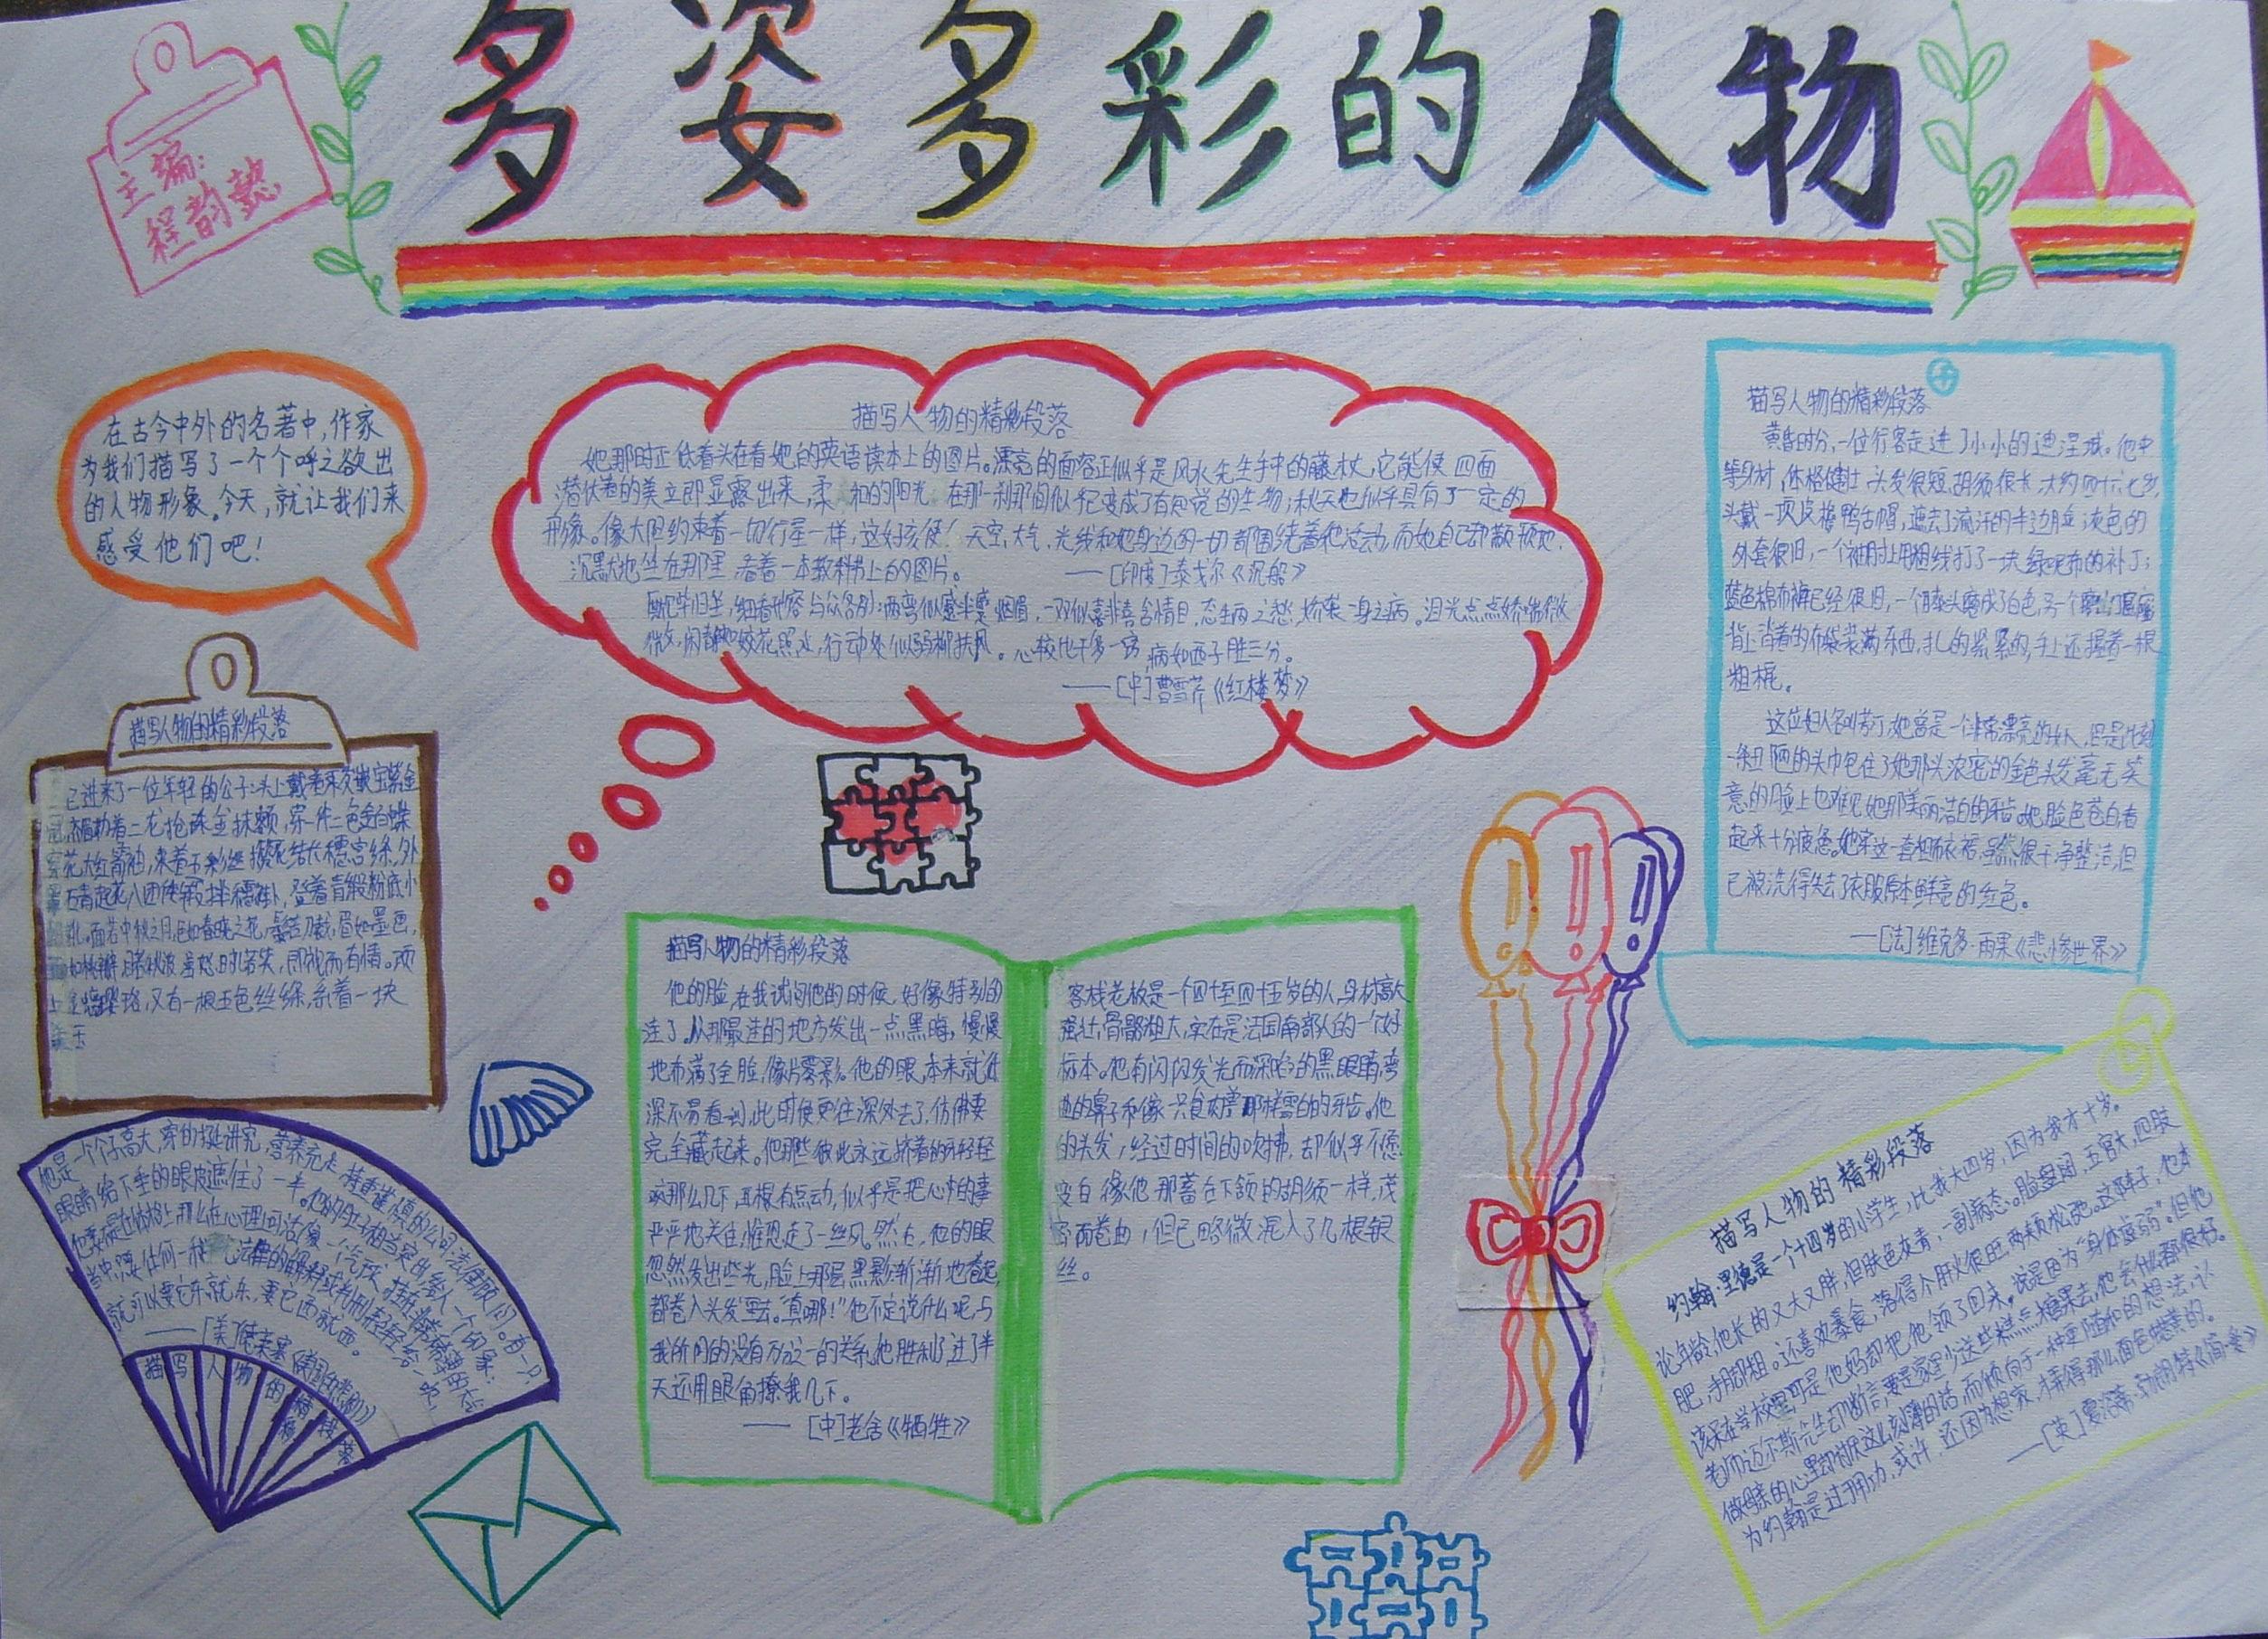 多姿多彩的人物
主编：
程韵懿
在古今中外的名著中，作家
为我们描写了一个个呼之欲出
的人物形象。今天，就让我们来
感受他们吧！
描写人物的精彩段落
她那时正低着头在看她的英语读本上的图片。漂亮的面容正似乎是风水先生手中的藤杖，它能使四面
潜伏着的美立即显露出来，柔和的阳光在那一刹那间似乎变成了有知觉的生物；秋天也似乎具有了一定的
形象。像太阳约束着一切行星一样，这女孩使天空、大气、光线和她身边的一切都围绕着她活动，而她自己却
沉默地坐在那里看着一本教科书上的图片。 ——[印度]泰戈尔《沉船》
细看形容与众各别：两弯似蹙非蹙烟眉，一双似喜非喜含情目，态生两之愁，娇袭一身之病。泪光点点娇喘微
微，闲静如姣花照水，行动处似弱柳扶风。心较比干多一窍，病如西子胜三分。
——[中]曹雪芹《红楼梦》
描写人物的精彩段落
黄昏时分，一位行客走进了小小的迪涅城。他中
等身材，体格健壮，头发很短，胡须很长，大约四十六七岁，
头戴一顶皮檐鸭舌帽，遮去了流汗的半边脸，灰色的
外套很旧，一个袖肘上用粗线打了一块绿呢布的补丁；
蓝色棉布裤已经很旧，一个膝头磨成了白色，另一个
背上背着的布袋装满东西，扎的紧紧的，手上还握着一根
粗棍。
这位妇人名叫芳汀，她曾是一个非常漂亮的女人，但是此刻
一条丑陋的头巾包住了她那头浓密的金色头发，毫无笑
意的脸上也难见她那美丽洁白的牙齿。她脸色苍白，看
起来十分疲惫。她穿这一套粗布衣裙，虽然很干净整洁，但
已被洗得失去了衣服原本鲜亮的红色。
——[法]维克多·雨果《悲惨世界》
描写人物的精彩段落
已进来了一位年轻的公子：头上戴着束发嵌宝紫金
冠，齐眉勒着二龙抢珠金抹额，穿一件二色金百蝶
穿花大红箭袖，束着五彩丝攒花结长穗宫绦，外
罩石青起花八团倭缎排穗褂，登着青缎粉底小
朝靴。面若中秋之月，色如春晓之花，鬓若刀裁，眉如墨画，
如桃瓣，目若秋波。虽怒时若笑，即视而有情。项
上金螭璎珞，又有一根五色丝绦，系着一块
美玉
描写人物的精彩段落
他的脸，在我试问他的时候，好像特别的
洼了。从那最洼的地方发出一点黑晦，慢慢
地布满了全脸，像片雾影。他的眼，本来就低
深不易看到，此时便更往深处去了，仿佛要
完全藏起来。他那些彼此永远挤着的牙轻轻
咬那么几下，耳根有点动，似乎是把心中的事
严严地关住，惟恐走了一丝风。然后，他的眼
忽然发出些光，脸上那层黑影渐渐地卷起，
都卷入头发里去。“真哪！”他不定说什么呢，与
我所问的没有万分之一的关系。他胜利了，过了半
天还用眼角撩我几下。
——[中]老舍《牺牲》
客栈老板是一个四十至四十五岁的人，身材高大
强壮，骨骼粗大，实在是法国南部人的一个好
标本。他有闪闪发光而深陷的黑眼睛，弯
曲的鼻子和像一只食肉兽那样雪白的牙齿。他
的头发，经过时间的吹拂，却似乎不愿
变白，像他那蓄在下颌的胡须一样，茂
密而卷曲，但已略微混入了几根银
丝。
他是一个个子高大，穿的挺讲究，营养充足，持重谨慎的公司法律顾问。
眼睛给下垂的眼皮遮住了一半。他的肚子相当突出，给人一个印象：
就可以要它东就东，要它西就西。
描写人物的精彩段落
描写人物的精彩段落
约翰·里德是一个十四岁的小学生，比我大四岁，因为我才十岁。
论年龄，他长的又大又胖，但肤色灰青，一副病态。脸盘阔，五官大，四肢
肥，手脚粗。还喜欢暴食，落得个肝火很旺，两颊松弛。这阵子，他本
该呆在学校里，可是他妈却把他领了回来，说是因为“身体虚弱”。但他
老师迈尔斯先生却断言，要是家里少送些糕点糖果去，他会什么都很好。
做母亲的心里却讨厌这么刻薄的话，而倾向于一种更随和的想法，认
为约翰是过于用功，或许，还因为想家，才弄得那么面色蜡黄的。
——[英]夏洛蒂·勃朗特《简·爱》